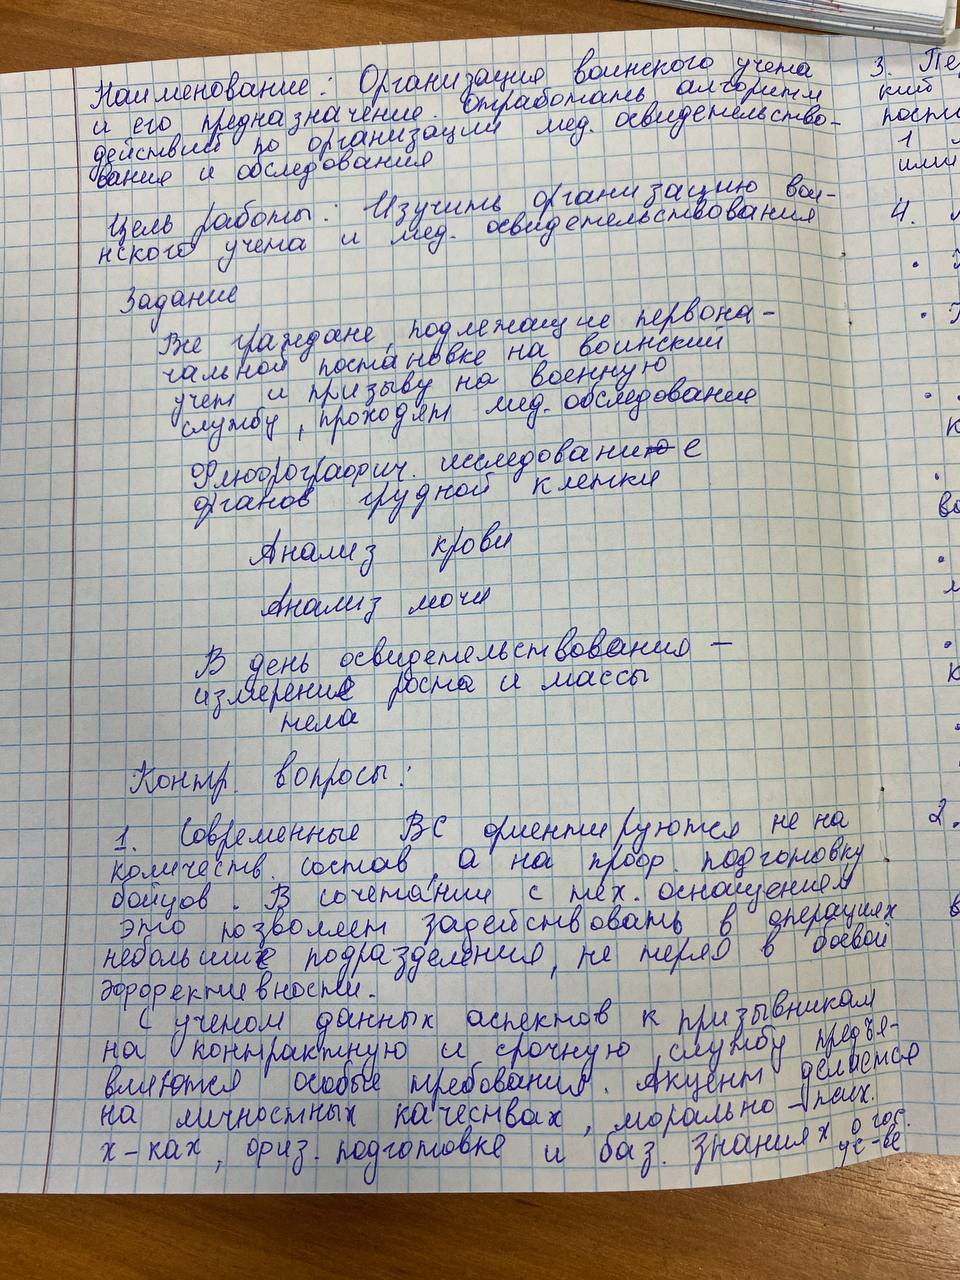 Наименование: Организация воинского учета
и его предназначение. Отработать алгоритм
действий по организации мед. освидетельство-
вания и обследования
Цель работы: Изучить организацию вои-
нского учета и мед. освидетельствования
Задание
Все граждане, подлежащие первона-
чальной постановке на воинский
учет и призыву на военную
службу, проходят мед. обследование
Флюорографич. исследование
органов грудной клетки
Анализ крови
Анализ мочи
В день освидетельствования -
измерение роста и массы
тела
Контр. вопросы:
1. Современные ВС ориентируются не на
количеств. состав, а на проф. подготовку
бойцов. В сочетании с тех. оснащением
это позволяет задействовать в операциях
небольшие подразделения, не теряя в боевой
эффективности.
С учетом данных аспектов к призывникам
на контрактную и срочную службу предъя-
вляются особые требования. Акцент делается
на личностных качествах, морально-псих.
х-ках, физ. подготовке и баз. знаниях о гос.
ус-ве
3.
кий
1
или
4.
2.